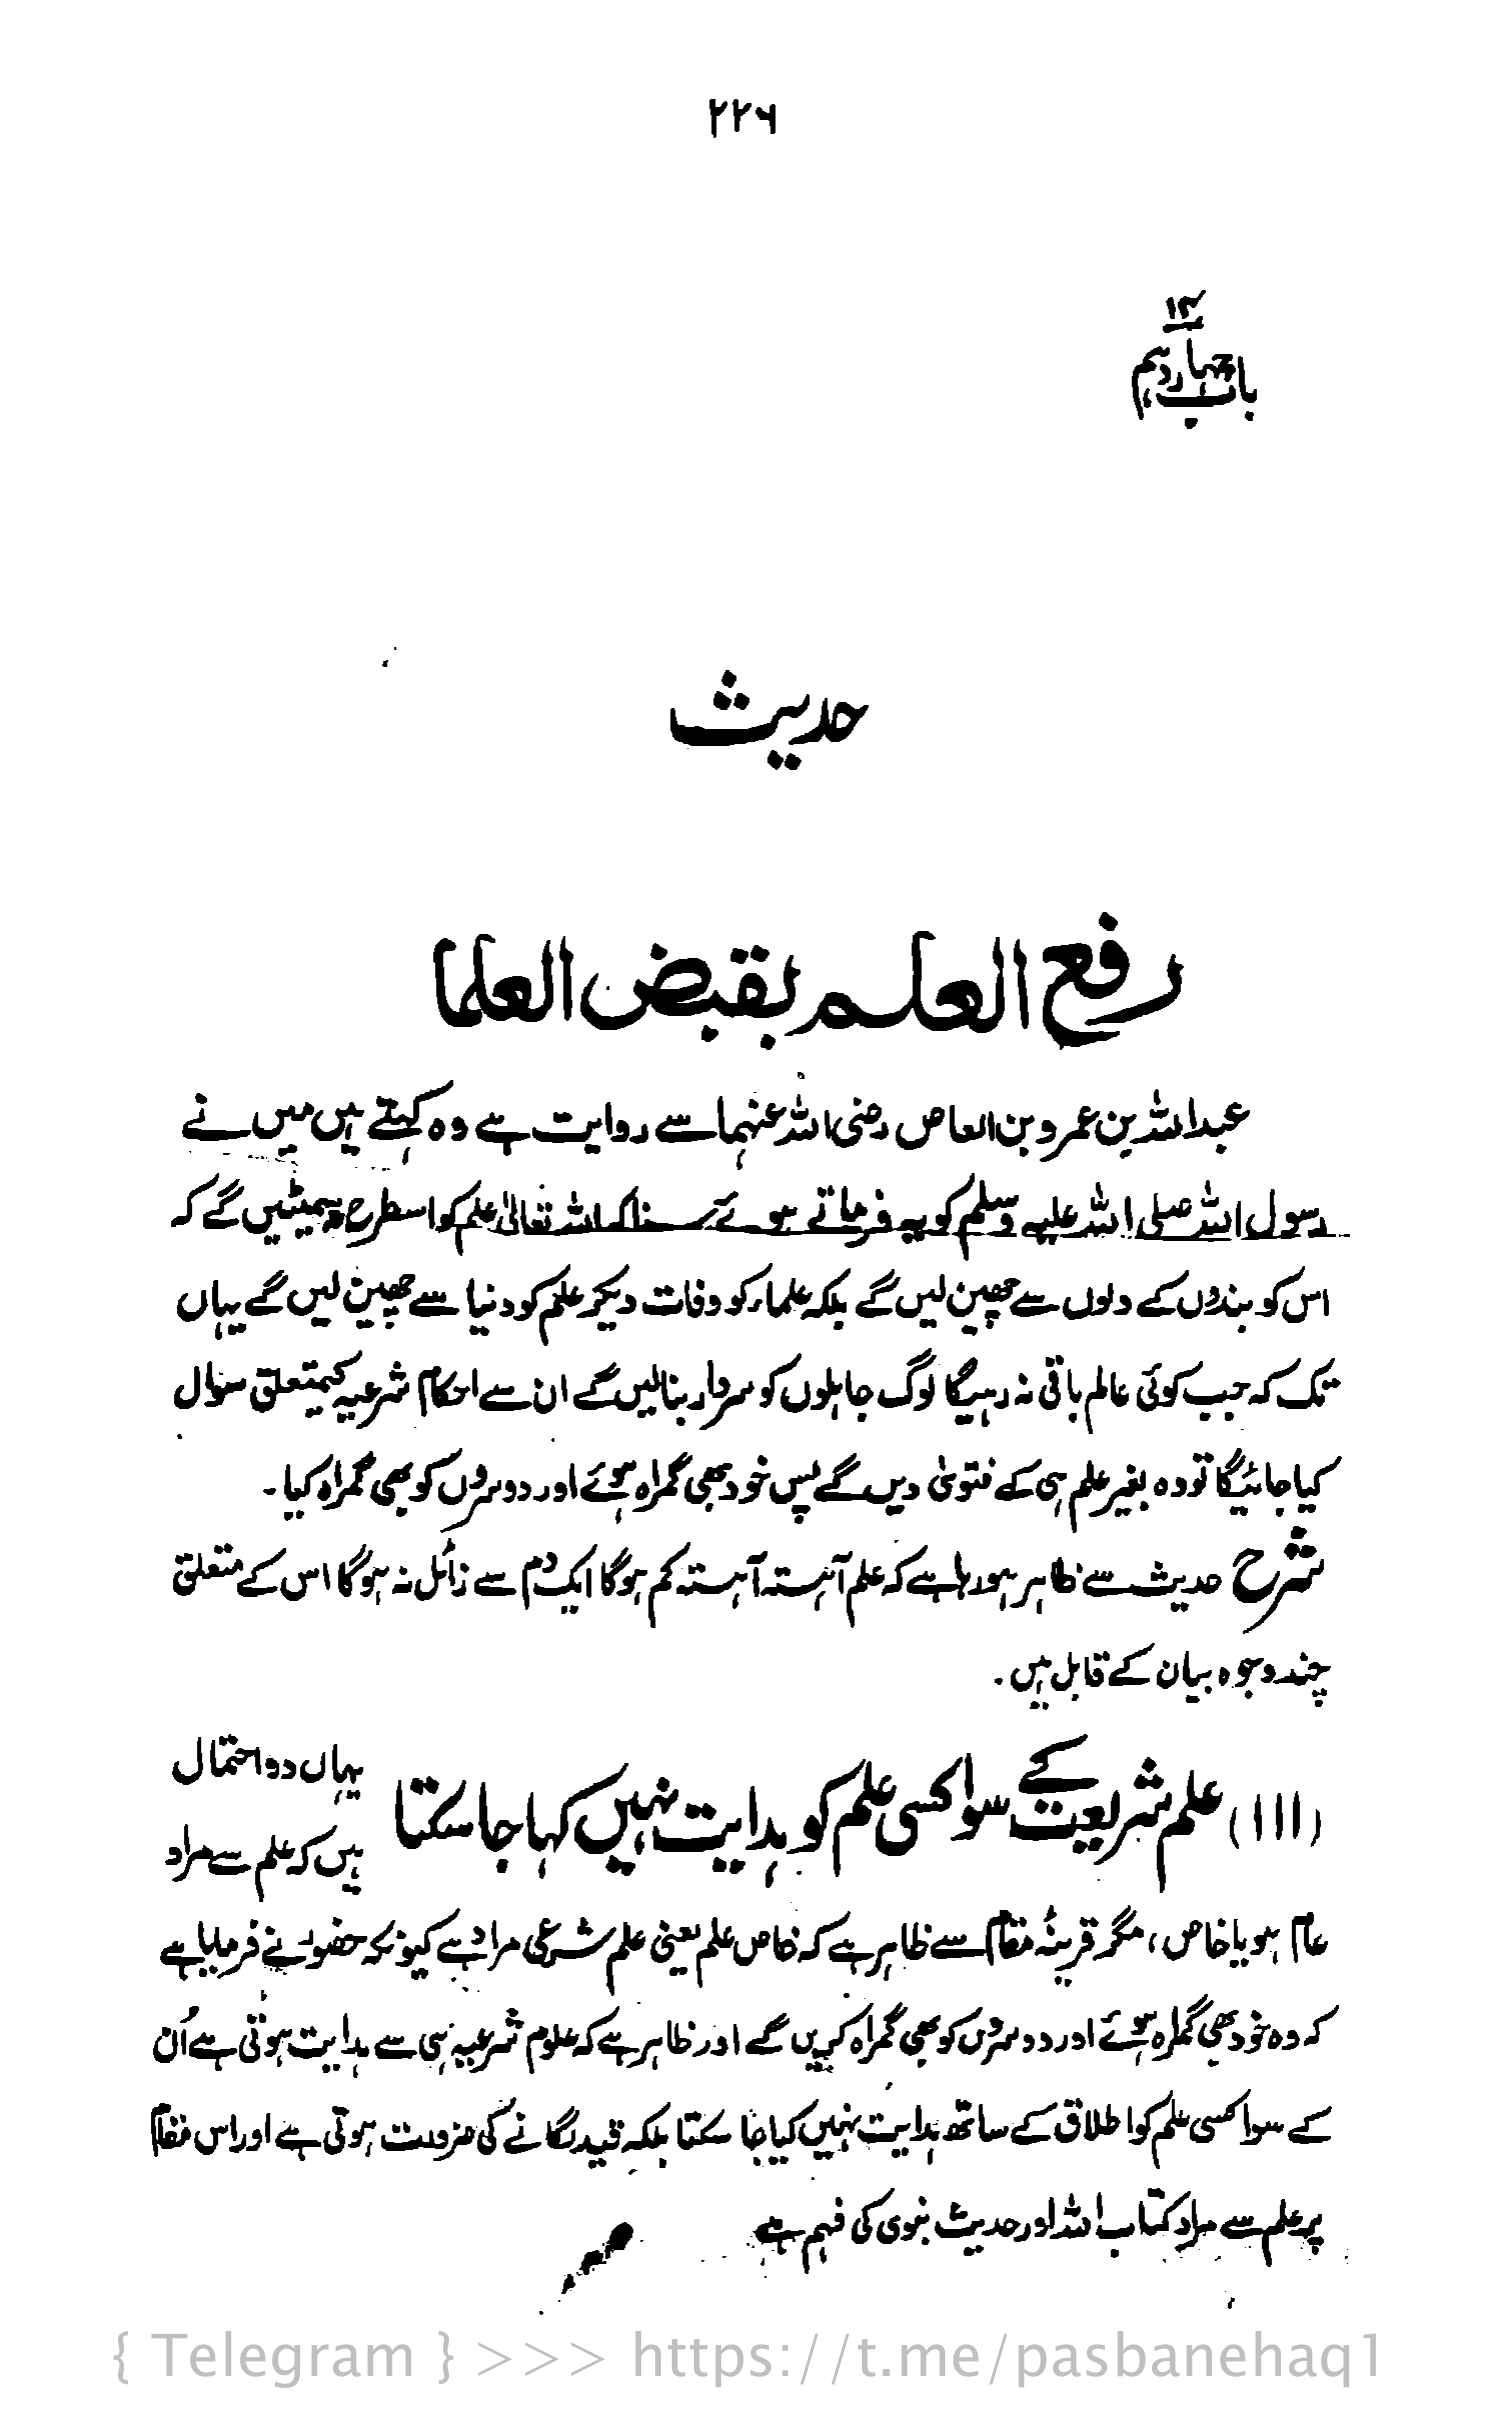 ۲۲۶
۱۴
باب چہاردہم
حدیث
رفع العلم بقبض العلما
عبداللہ بن عمرو بن العاص رضی اللہ عنہما سے روایت ہے وہ کہتے ہیں میں نے
رسول اللہ صلی اللہ علیہ وسلم کو یہ فرماتے ہوئے سنا کہ اللہ تعالیٰ علم کو اسطرح نہ سمیٹیں گے کہ
اس کو بندوں کے دلوں سے چھین لیں گے بلکہ علماء کو وفات دیکر علم کو دنیا سے چھین لیں گے یہاں
تک کہ جب کوئی عالم باقی نہ رہیگا لوگ جاہلوں کو سردار بنالیں گے ان سے احکام شرعیہ کیمتعلق سوال
کیا جائیگا تو وہ بغیر علم ہی کے فتویٰ دیں گے پس خود بھی گمراہ ہوئے اور دوسروں کو بھی گمراہ کیا۔
شرح حدیث سے ظاہر ہورہا ہے کہ علم آہستہ آہستہ کم ہوگا ایک دم سے زائل نہ ہوگا اس کے متعلق
چند وجوہ بیان کے قابل ہیں۔
(۱۱۱) علم شریعت کے سوا کسی علم کو ہدایت نہیں کہا جاسکتا یہاں دو احتمال
ہیں کہ علم سے مراد
عام ہو یا خاص، مگر قرینۂ مقام سے ظاہر ہے کہ خاص علم یعنی علم شرعی مراد ہے کیونکہ حضور نے فرمایا ہے
کہ وہ خود بھی گمراہ ہوئے اور دوسروں کو بھی گمراہ کریں گے اور ظاہر ہے کہ علوم شرعیہ ہی سے ہدایت ہوتی ہے اُن
کے سوا کسی علم کو اطلاق کے ساتھ ہدایت نہیں کیا جا سکتا بلکہ قید لگانے کی ضرورت ہوتی ہے اور اس مقام
پر علم سے مراد کتاب اللہ اور حدیث نبوی کی فہم ہے
{ Telegram } >>> https://t.me/pasbanehaq1